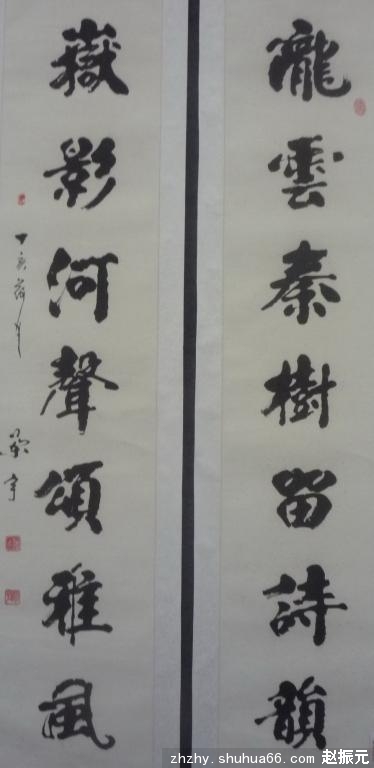 隴雲秦樹留詩韻
嶽影河聲頌雅風
丁亥
zhzhy.shuhua66.com 赵振元